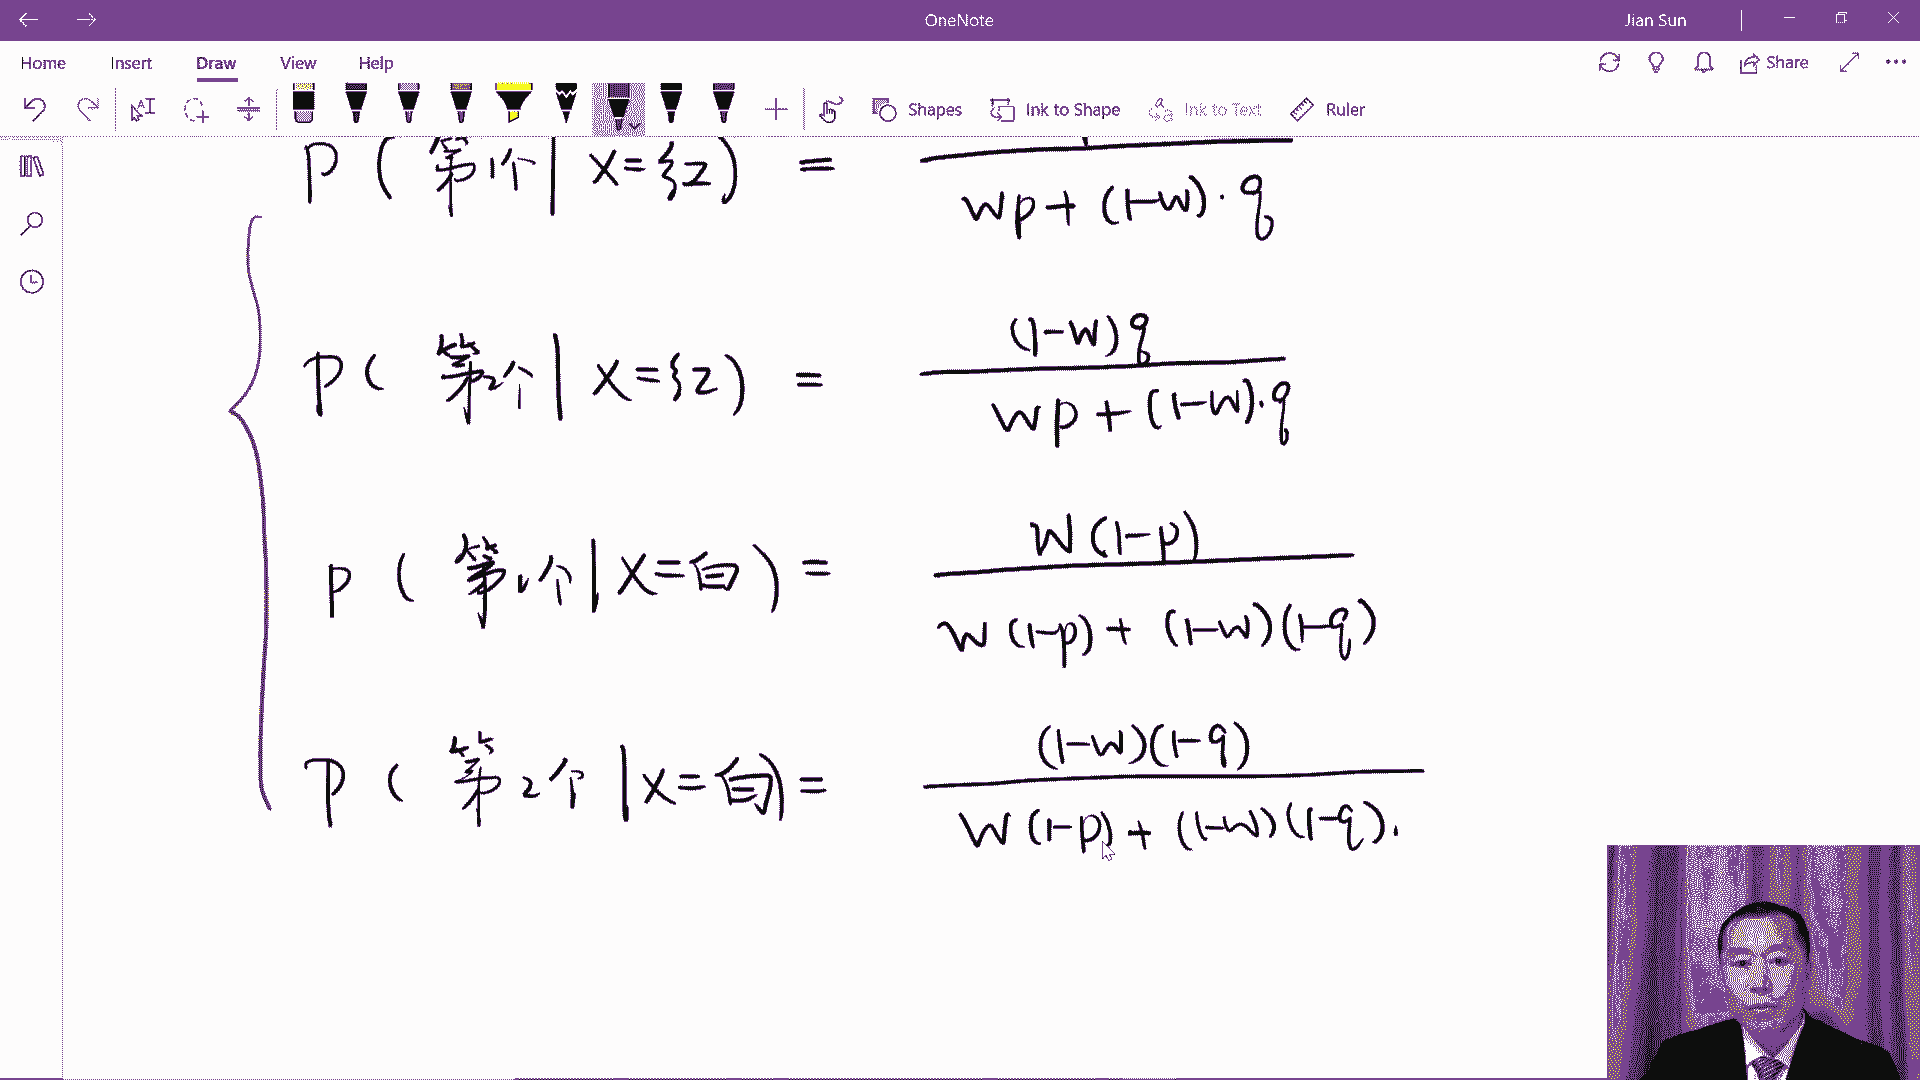 OneNote
Jian Sun
Home Insert Draw View Help
Share
Shapes Ink to Shape Ink to Text Ruler
P ( 第1个 | X=红 ) =
wp + (1-w)·q
P ( 第2个 | X=红 ) = (1-w)q
wp + (1-w)·q
P ( 第1个 | X=白 ) = w(1-p)
w(1-p) + (1-w)(1-q)
P ( 第2个 | X=白 ) = (1-w)(1-q)
w(1-p) + (1-w)(1-q).